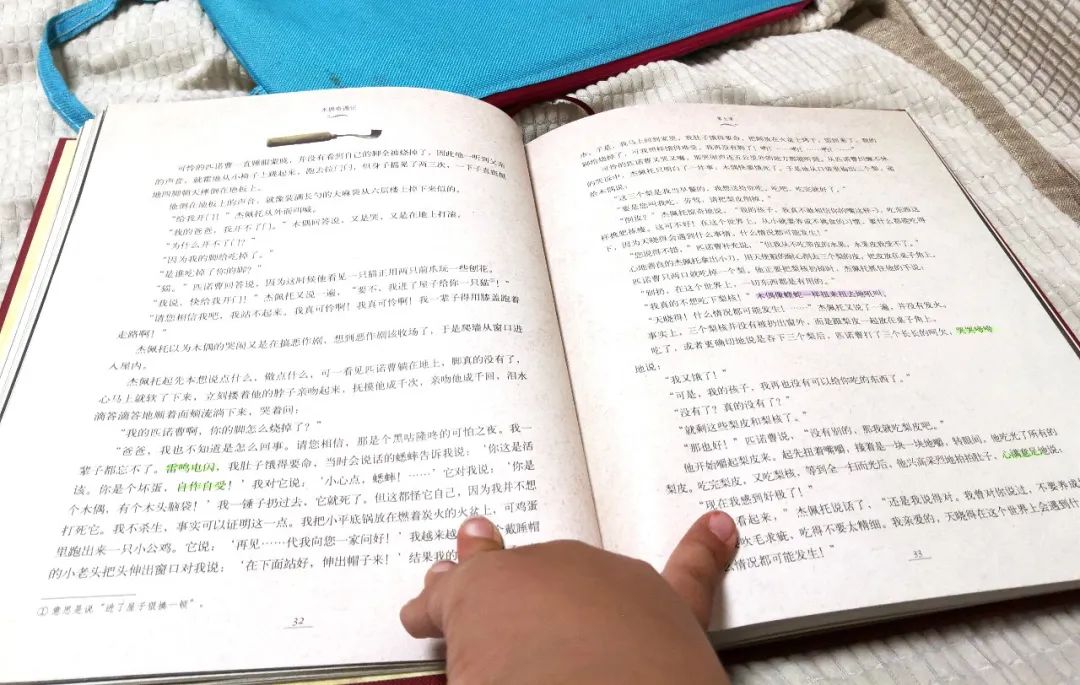 木偶奇遇记
可怜的匹诺曹一直睡眼蒙眬，并没有看到自己的脚全被烧掉了，因此他一听到父亲
的声音，就霍地从小椅子上跳起来，跑去拉门闩，但身子摇晃了两三次，一下子直挺挺
地四脚朝天摔倒在地板上。
他倒在地板上的声音，就像装满长勺的大麻袋从六层楼上掉下来似的。
“给我开门！”杰佩托从外面叫喊。
“我的爸爸，我开不了门。”木偶回答说，又是哭，又是在地上打滚。
“为什么开不了门？”
“因为我的脚给吃掉了。”
“是谁吃掉了你的脚？”
“猫。”匹诺曹回答说，因为这时候他看见一只猫正用两只前爪玩一些刨花。
“我说，快给我开门！”杰佩托又说一遍，“要不，我进了屋子给你一只猫①！”
“请您相信我吧，我站不起来。我真可怜啊！我真可怜啊！我一辈子得用膝盖跑着
走路啊！”
杰佩托以为木偶的哭闹又是在搞恶作剧，想到恶作剧该收场了，于是爬墙从窗口进
入屋内。
杰佩托起先本想说点什么，做点什么，可一看见匹诺曹躺在地上，脚真的没有了，
心马上就软了下来，立刻搂着他的脖子亲吻起来，抚摸他成千次，亲吻他成千回，泪水
滴答滴答地顺着面颊流淌下来，哭着问：
“我的匹诺曹啊，你的脚怎么烧掉了？”
“爸爸，我也不知道是怎么回事。请您相信，那是个黑咕隆咚的可怕之夜。我一
辈子都忘不了。雷鸣电闪，我肚子饿得要命，当时会说话的蟋蟀告诉我说：‘你这是活
该。你是个坏蛋，自作自受！’我对它说：‘小心点，蟋蟀！……’它对我说：‘你是
个木偶，有个木头脑袋！’我一锤子扔过去，它就死了。但这都怪它自己，因为我并不想
打死它。我不杀生，事实可以证明这一点。我把小平底锅放在燃着炭火的火盆上，可鸡蛋
里跑出来一只小公鸡。它说：‘再见……代我向您一家问好！’我越来越 个戴睡帽
的小老头把头伸出窗口对我说：‘在下面站好，伸出帽子来！’结果我的
① 意思是说“进了屋子狠揍一顿”。
32
第七章
水，于是，我马上回到家里，我肚子饿得要命，把脚放在火盆上烤干，您回来了，我的
脚给烧掉了，可我照样饿得难受，我再没有脚了！咿！……咿！……咿！……”
可怜的匹诺曹又哭又嚷，那哭闹声连五公里外的地方都能听到。
的哭诉中，杰佩托只明白了一件事，木偶快要饿死了，于是他从口袋里掏出三个梨，递
给木偶说：
“这三个梨是我当早餐的，我愿送给你吃。吃吧，吃完就好了。”
“要是您叫我吃，劳驾，请把梨削掉。”
“削皮？”杰佩托惊奇地说。“我的孩子，我真不敢相信你的嘴这样刁，吃东西这
样挑肥拣瘦。这可不好！在这个世界上，从小就要养成不挑食的习惯，要什么都能吃得
下，因为天晓得会遇到什么事情。什么情况都可能发生！”
“您说得不错，”匹诺曹补充说，“但我从不吃带皮的水果。水果皮我受不了。”
心地善良的杰佩托拿出小刀，用天使般的耐心削去三个梨的皮，把皮放在桌子角上。
匹诺曹只两口就吃掉一个梨。他正要把梨核扔掉时，杰佩托抓住他的手说：
“别扔，在这个世界上，一切东西都是有用的。”
“我真的不想吃下梨核！”木偶像蝰蛇一样扭来扭去地吼叫。
“天晓得！什么情况都可能发生！……”杰佩托又说了一遍，并没有发火。
事实上，三个梨核并没有被扔出窗外，而是跟梨皮一起放在桌子角上。
吃了，或者更确切地说是吞下三个梨后，匹诺曹打了三个长长的呵欠，哭哭啼啼
地说：
“我又饿了！”
“可是，我的孩子，我再也没有可以给你吃的东西了。”
“没有了？真的没有了？”
“就剩这些梨皮和梨核了。”
“那也好！”匹诺曹说，“没有别的，那我就吃梨皮吧。”
他开始嚼起梨皮来。起先扭着嘴嚼，接着是一块一块地嚼，转眼间，他吃光了所有的
梨皮。吃完梨皮，又吃梨核，等到全一扫而光后，他兴高采烈地拍拍肚子，心满意足地说：
“现在我感到好极了！”
看起来，”杰佩托说话了，“还是我说得对。我曾对你说过，不要养成
吹毛求疵，吃得不要太精细。我亲爱的，天晓得在这个世界上会遇到什
情况都可能发生！”
33